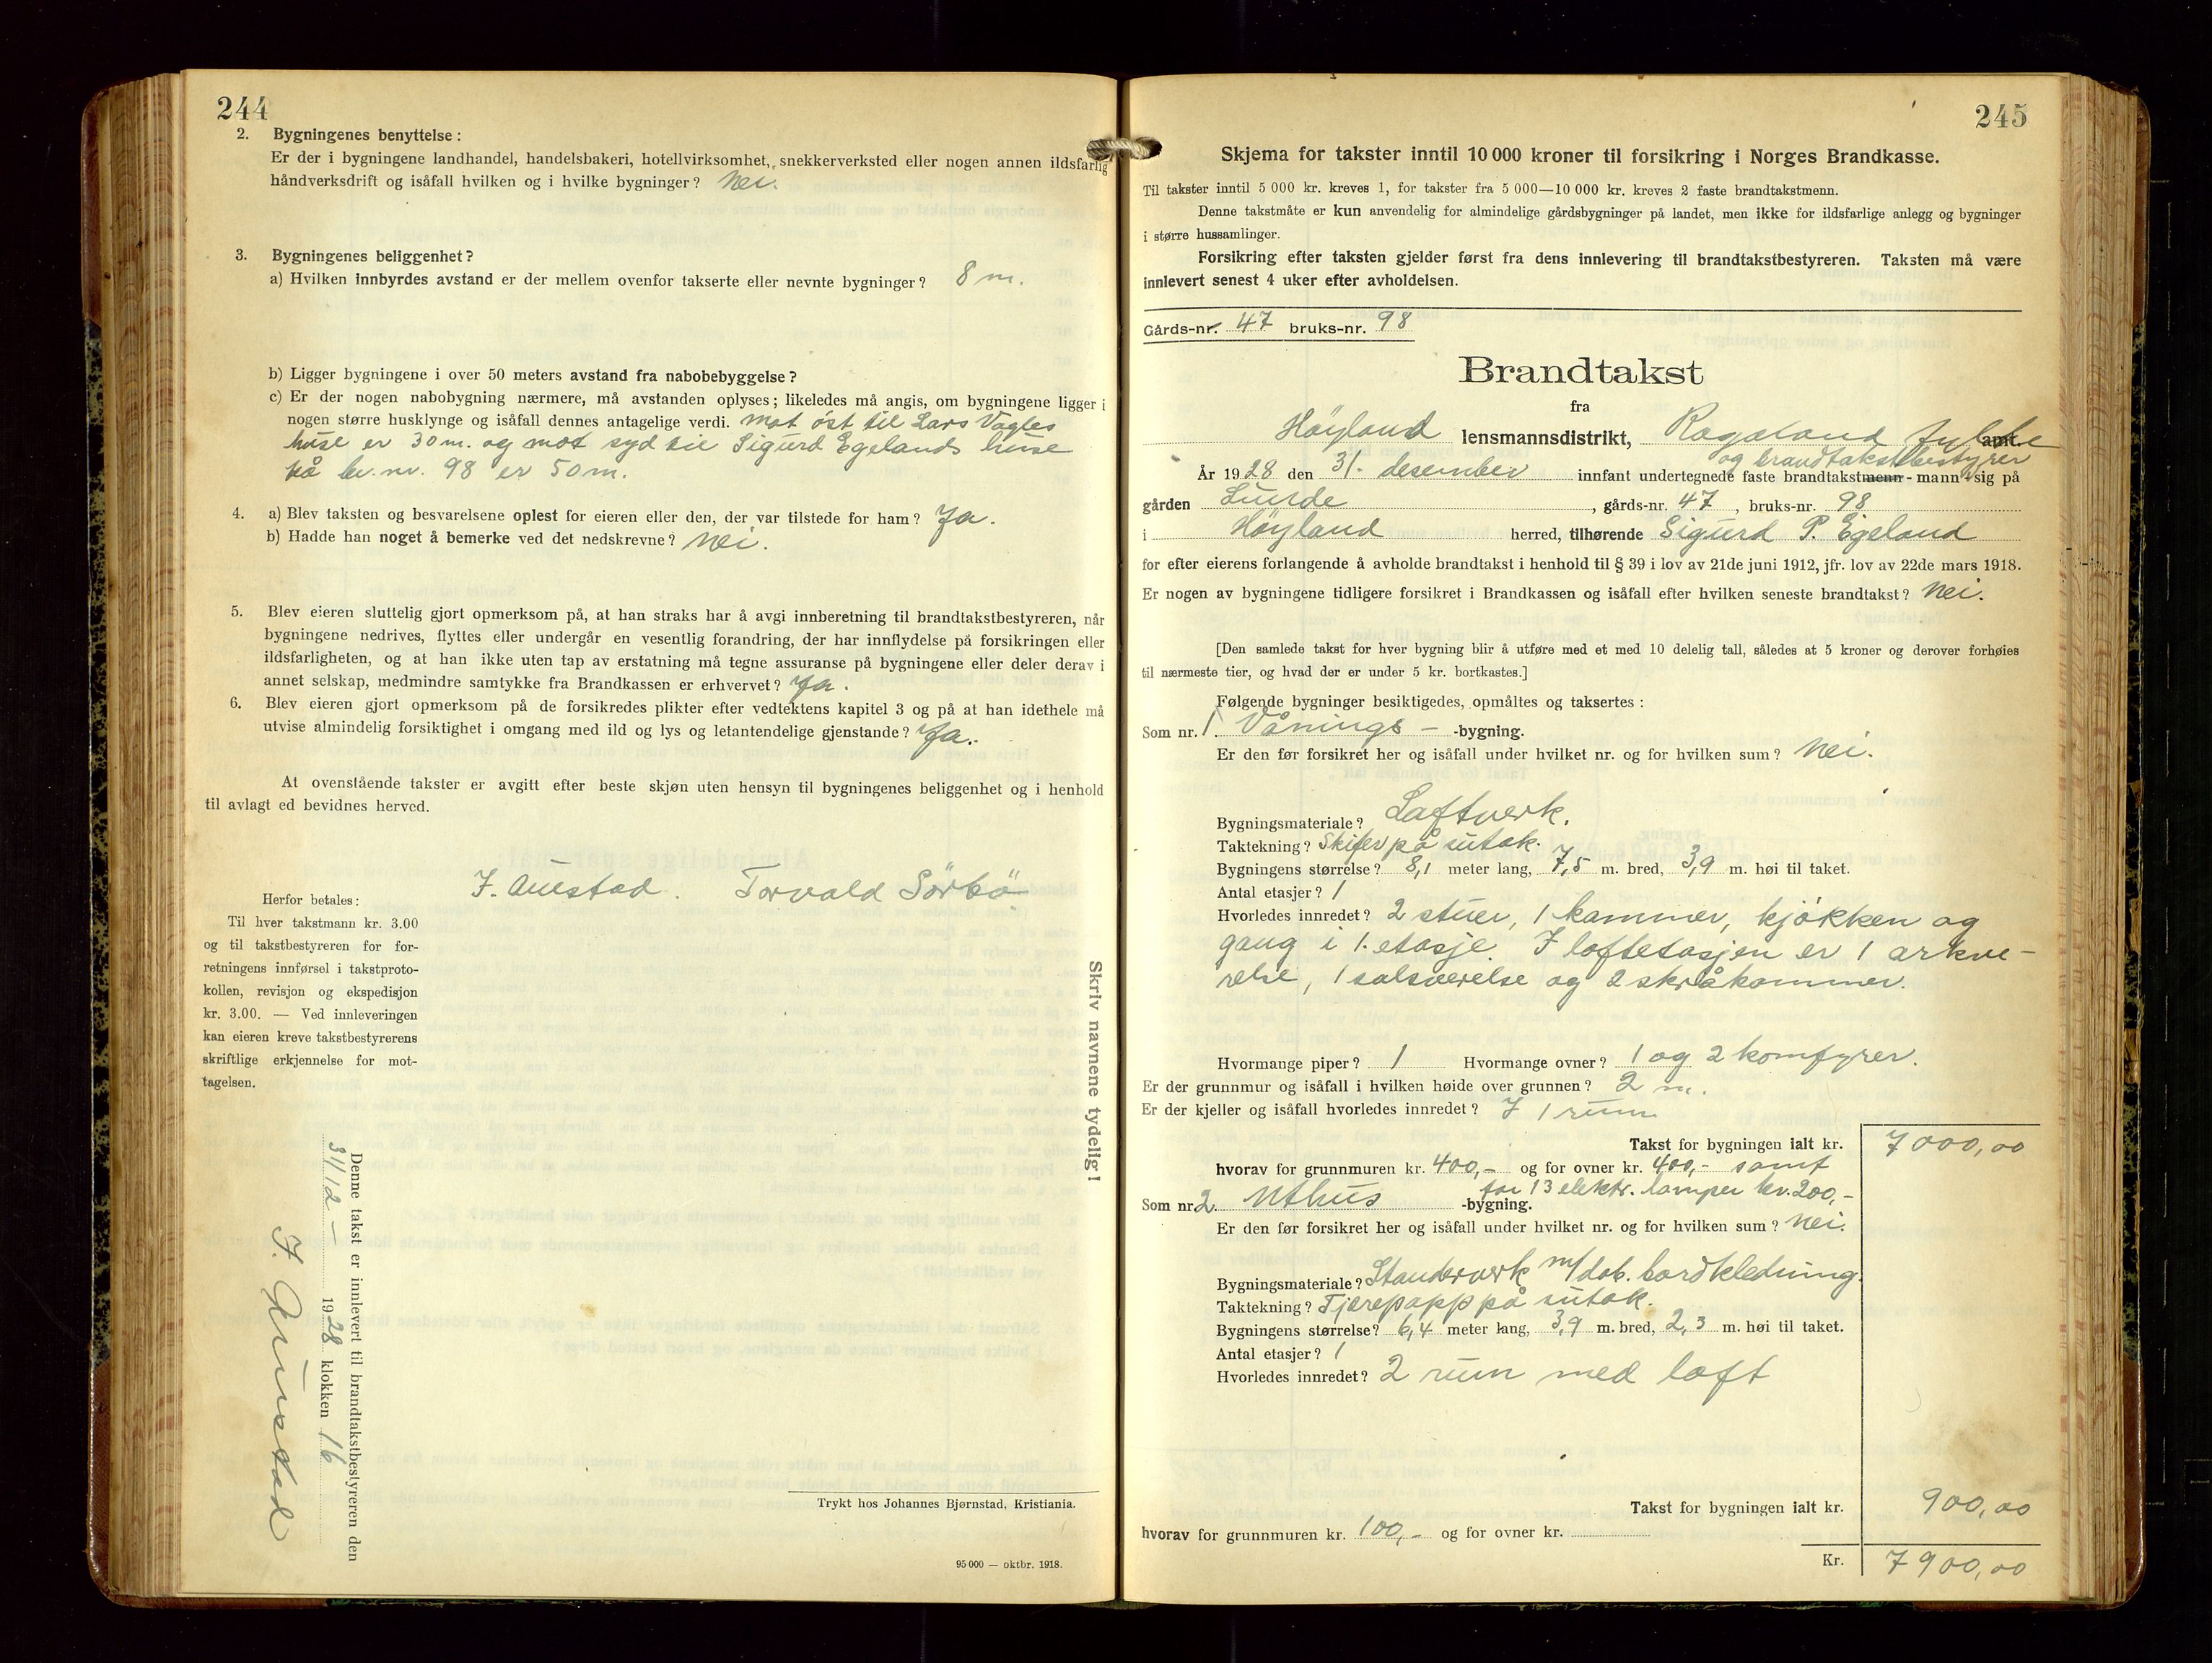 244
2. Bygningenes benyttelse:
Er der i bygningene landhandel, handelsbakeri, hotellvirksomhet, snekkerverksted eller nogen annen ildsfarlig
håndverksdrift og isåfall hvilken og i hvilke bygninger? Nei.
3. Bygningenes beliggenhet?
a) Hvilken innbyrdes avstand er der mellem ovenfor takserte eller nevnte bygninger? 8 m.
b) Ligger bygningene i over 50 meters avstand fra nabobebyggelse?
c) Er der nogen nabobygning nærmere, må avstanden oplyses; likeledes må angis, om bygningene ligger i
nogen større husklynge og isåfall dennes antagelige verdi. Mot öst til Lars Vagles
huse er 30 m. og mot syd til Sigurd Egelands huse
på br.nr. 98 er 50 m.
4. a) Blev taksten og besvarelsene oplest for eieren eller den, der var tilstede for ham? Ja.
b) Hadde han noget å bemerke ved det nedskrevne? Nei.
5. Blev eieren sluttelig gjort opmerksom på, at han straks har å avgi innberetning til brandtakstbestyreren, når
bygningene nedrives, flyttes eller undergår en vesentlig forandring, der har innflydelse på forsikringen eller
ildsfarligheten, og at han ikke uten tap av erstatning må tegne assuranse på bygningene eller deler derav i
annet selskap, medmindre samtykke fra Brandkassen er erhvervet? Ja.
6. Blev eieren gjort opmerksom på de forsikredes plikter efter vedtektens kapitel 3 og på at han idethele må
utvise almindelig forsiktighet i omgang med ild og lys og letantendelige gjenstande? Ja.
At ovenstående takster er avgitt efter beste skjøn uten hensyn til bygningenes beliggenhet og i henhold
til avlagt ed bevidnes herved.
J. Austad. Torvald Sörbö
Herfor betales:
Til hver takstmann kr. 3.00
og til takstbestyreren for for-
retningens innførsel i takstproto-
kollen, revisjon og ekspedisjon
kr. 3.00. — Ved innleveringen
kan eieren kreve takstbestyrerens
skriftlige erkjennelse for mot-
tagelsen.
Skriv navnene tydelig!
Denne takst er innlevert til brandtakstbestyreren den
31/12 – 1928 klokken 16
J. Austad
Trykt hos Johannes Bjørnstad, Kristiania.
95 000 — oktbr. 1918.
245
Skjema for takster inntil 10 000 kroner til forsikring i Norges Brandkasse.
Til takster inntil 5 000 kr. kreves 1, for takster fra 5 000—10 000 kr. kreves 2 faste brandtakstmenn.
Denne takstmåte er kun anvendelig for almindelige gårdsbygninger på landet, men ikke for ildsfarlige anlegg og bygninger
i større hussamlinger.
Forsikring efter taksten gjelder først fra dens innlevering til brandtakstbestyreren. Taksten må være
innlevert senest 4 uker efter avholdelsen.
Gårds-nr. 47 bruks-nr. 98
Brandtakst
fra
Höyland lensmannsdistrikt, Rogaland fylke amt.
og brandtakstbestyrer
År 1928 den 31. desember innfant undertegnede faste brandtakstmenn - mann sig på
gården Lurde, gårds-nr. 47, bruks-nr. 98
i Höyland herred, tilhørende Sigurd P. Egeland
for efter eierens forlangende å avholde brandtakst i henhold til § 39 i lov av 21de juni 1912, jfr. lov av 22de mars 1918.
Er nogen av bygningene tidligere forsikret i Brandkassen og isåfall efter hvilken seneste brandtakst? Nei.
[Den samlede takst for hver bygning blir å utføre med et med 10 delelig tall, således at 5 kroner og derover forhøies
til nærmeste tier, og hvad der er under 5 kr. bortkastes.]
Følgende bygninger besiktigedes, opmåltes og taksertes:
Som nr. 1. Vånings – -bygning.
Er den før forsikret her og isåfall under hvilket nr. og for hvilken sum? Nei.
Bygningsmateriale? Laftverk.
Taktekning? Skifer på sutak.
Bygningens størrelse? 8,1 meter lang, 7,5 m. bred, 3,9 m. høi til taket.
Antal etasjer? 1
Hvorledes innredet? 2 stuer, 1 kammer, kjökken og
gang i 1. etasje. I loftetasjen er 1 arkve-
relse, 1 salsværelse og 2 skråkammer.
Hvormange piper? 1 Hvormange ovner? 1 og 2 komfyrer.
Er der grunnmur og isåfall i hvilken høide over grunnen? 2 m.
Er der kjeller og isåfall hvorledes innredet? I 1 rum
Takst for bygningen ialt kr. 7000,00
hvorav for grunnmuren kr. 400,- og for ovner kr. 400,- samt
for 13 elektr. lamper kr. 200,-
Som nr. 2 Uthus -bygning.
Er den før forsikret her og isåfall under hvilket nr. og for hvilken sum? Nei.
Bygningsmateriale? Standerverk m/dob. bordkledning.
Taktekning? Tjærepapp på sutak.
Bygningens størrelse? 6,4 meter lang, 3,9 m. bred, 2,3 m. høi til taket.
Antal etasjer? 1
Hvorledes innredet? 2 rum med loft
Takst for bygningen ialt kr. 900,00
hvorav for grunnmuren kr. 100,- og for ovner kr.
Kr. 7900,00